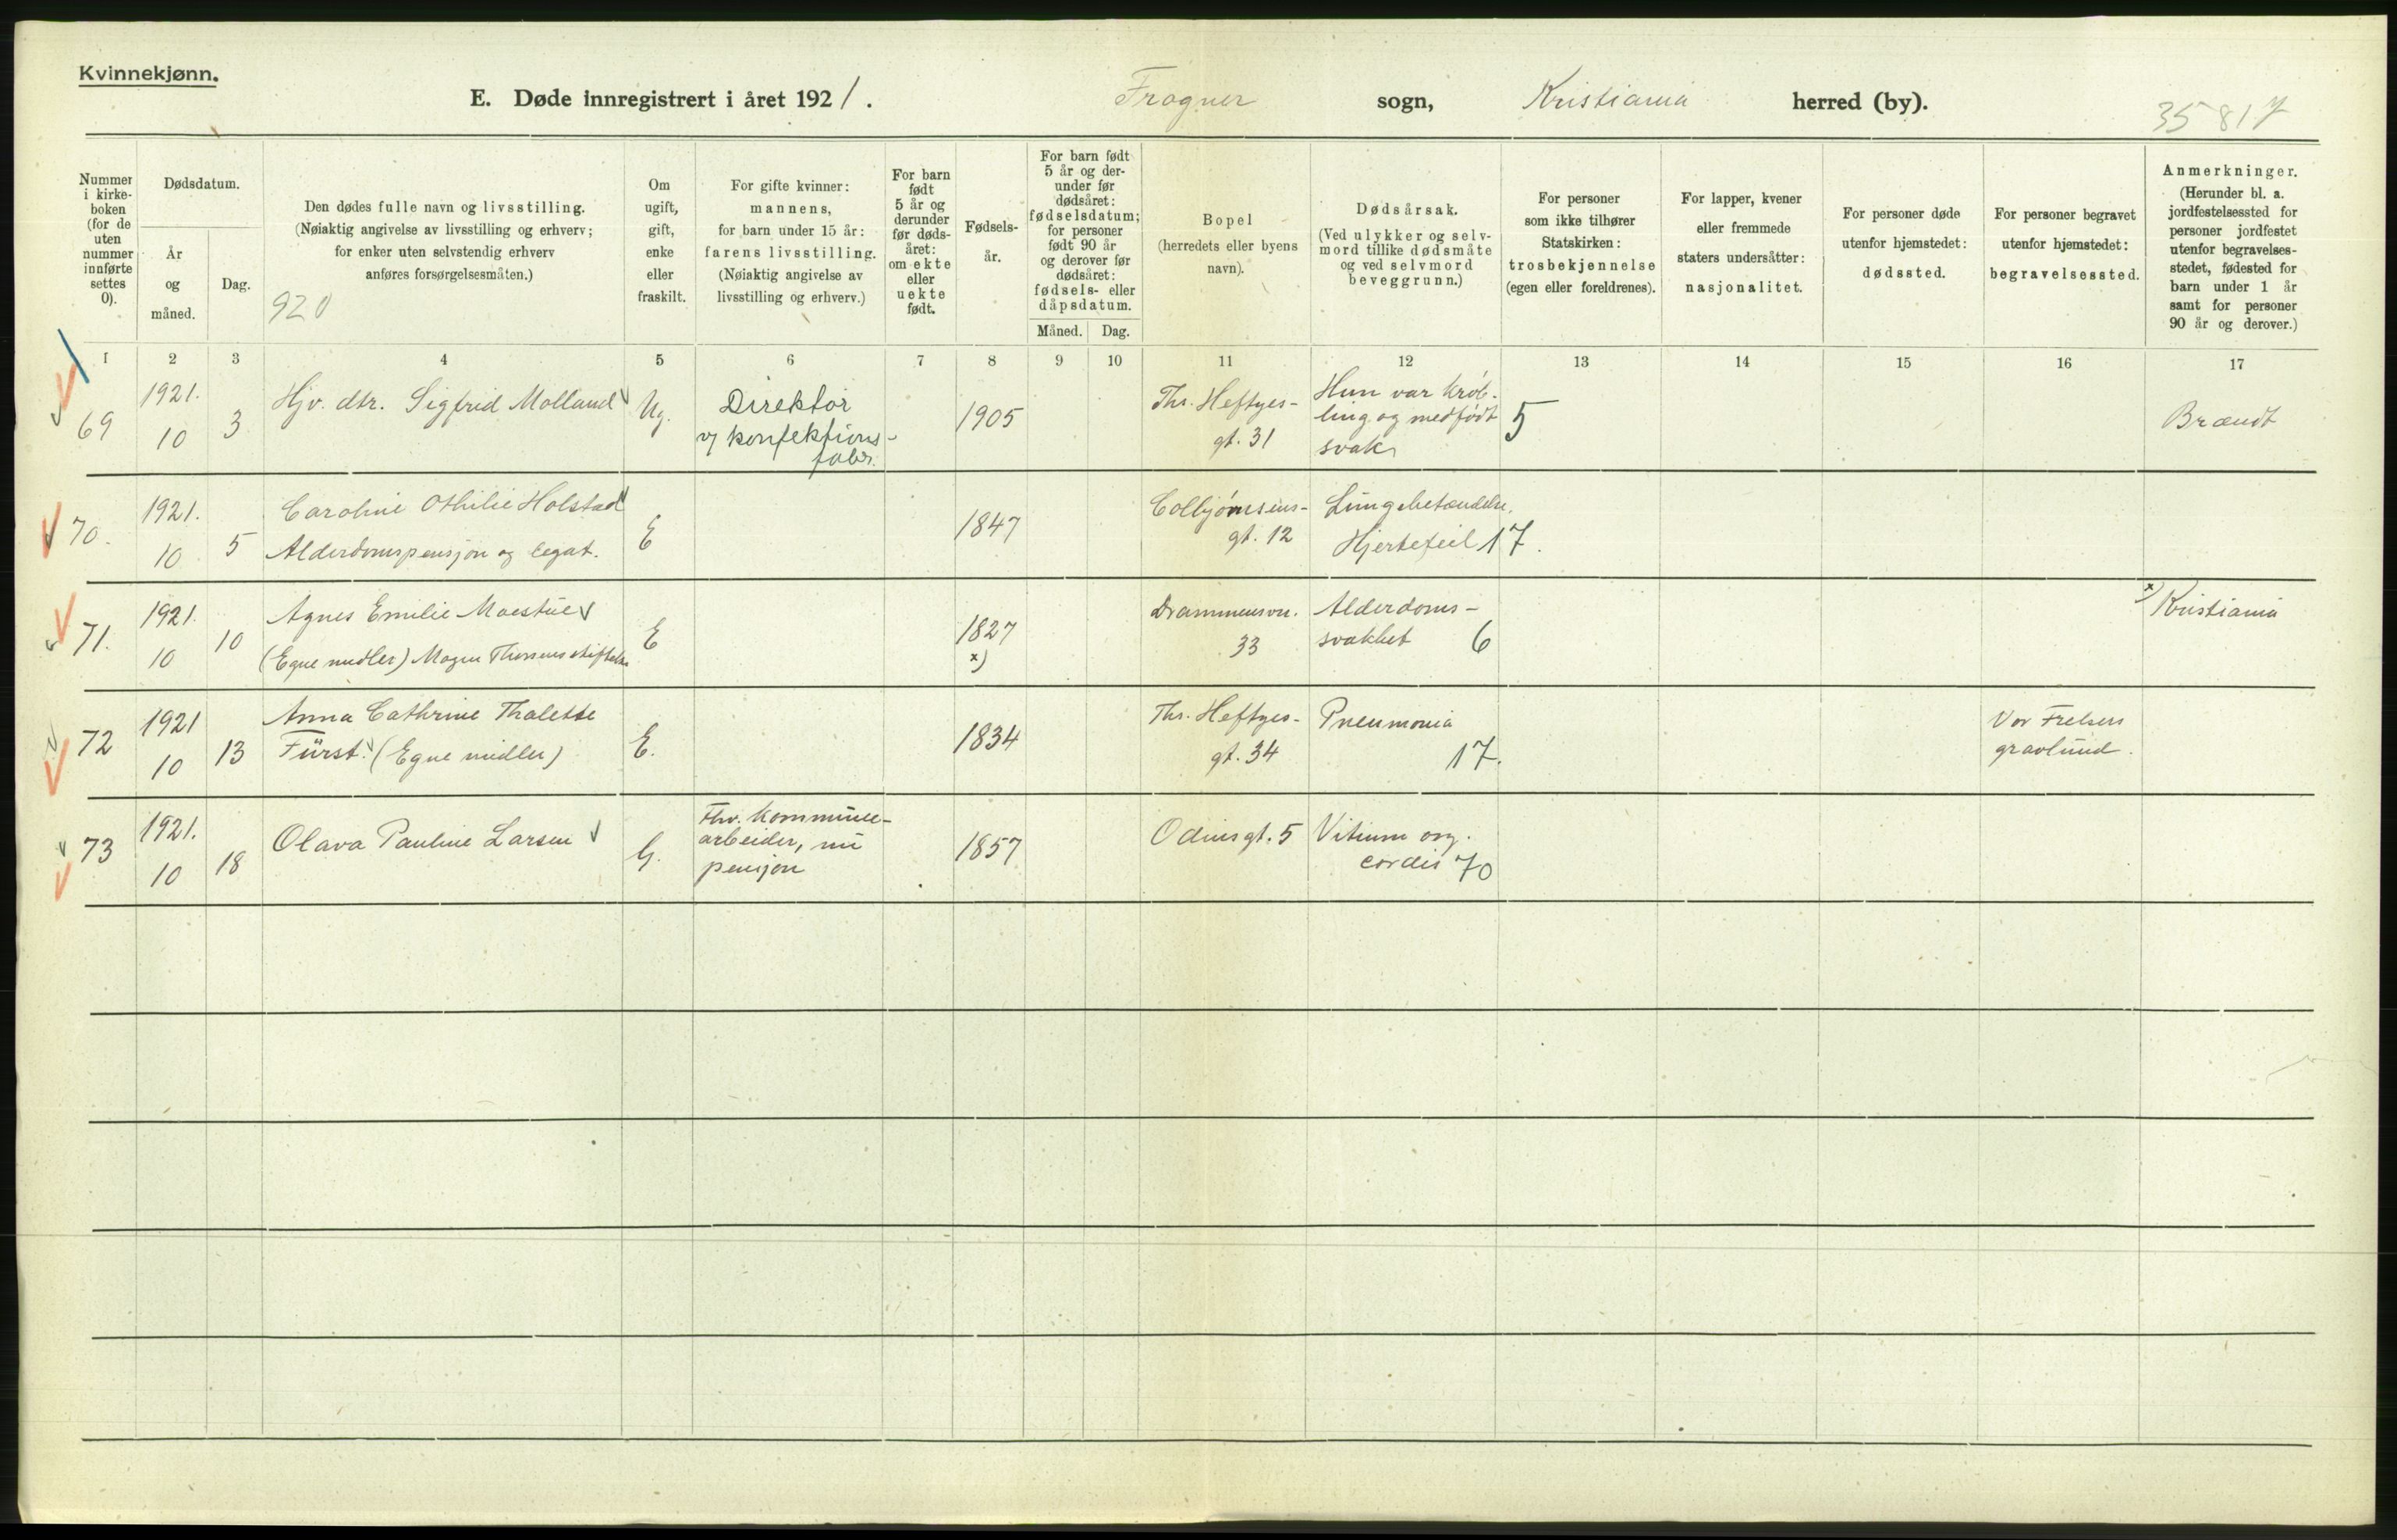 Kvinnekjønn.
E. Døde innregistrert i året 1921. Frogner sogn, Kristiania herred (by).
35 817
Nummer i kirke-boken (for de uten nummer innførte settes 0).
Dødsdatum.
År og måned.
Dag.
Den dødes fulle navn og livsstilling.
(Nøiaktig angivelse av livsstilling og erhverv;
for enker uten selvstendig erhverv
anføres forsørgelsesmåten.)
920
Om ugift, gift, enke eller fraskilt.
For gifte kvinner:
mannens,
for barn under 15 år:
farens livsstilling.
(Nøiaktig angivelse av
livsstilling og erhverv.)
For barn født 5 år og derunder før døds-året: om ekte eller uekte født.
Fødsels-år.
For barn født 5 år og der-under før dødsåret: fødselsdatum; for personer født 90 år og derover før dødsåret: fødsels- eller dåpsdatum.
Måned. Dag.
Bopel
(herredets eller byens
navn).
Dødsårsak.
(Ved ulykker og selv-
mord tillike dødsmåte
og ved selvmord
beveggrunn.)
For personer
som ikke tilhører
Statskirken:
trosbekjennelse
(egen eller foreldrenes).
For lapper, kvener
eller fremmede
staters undersåtter:
nasjonalitet.
For personer døde
utenfor hjemstedet:
dødssted.
For personer begravet
utenfor hjemstedet:
begravelsessted.
Anmerkninger.
(Herunder bl. a.
jordfestelsessted for
personer jordfestet
utenfor begravelses-
stedet, fødested for
barn under 1 år
samt for personer
90 år og derover.)
1 2 3 4 5 6 7 8 9 10 11 12 13 14 15 16 17
69
1921.
10
3
Hjv. dtr. Sigfrid Molland
Ug.
Direktør
v/ konfektions-
fabr.
1905
Ths. Heftyes-
gt. 31
Hun var krøb-
ling og medfødt 5
svak
Brændt
70.
1921.
10
5
Caroline Othilie Holstad
Alderdomspensjon og legat.
E
1847
Colbjørnsens-
gt. 12
Lungebetændelse.
Hjertefeil 17.
71.
1921.
10
10
Agnes Emilie Maestue
(Egne midler) Mogen Thorsens stiftelse
E
1827
x)
Drammensvn.
33
Alderdoms-
svakhet 6
x) Kristiania
72
1921
10
13
Anna Cathrine Thalette
Fürst. (Egne midler)
E.
1834
Ths. Heftyes-
gt. 34
Pneumonia
17.
Vor Frelsers
gravlund.
73
1921.
10
18
Olava Pauline Larsen
G.
Fhv. kommune-
arbeider, nu
pensjon
1857
Odinsgt. 5
Vitium org.
cordis 70